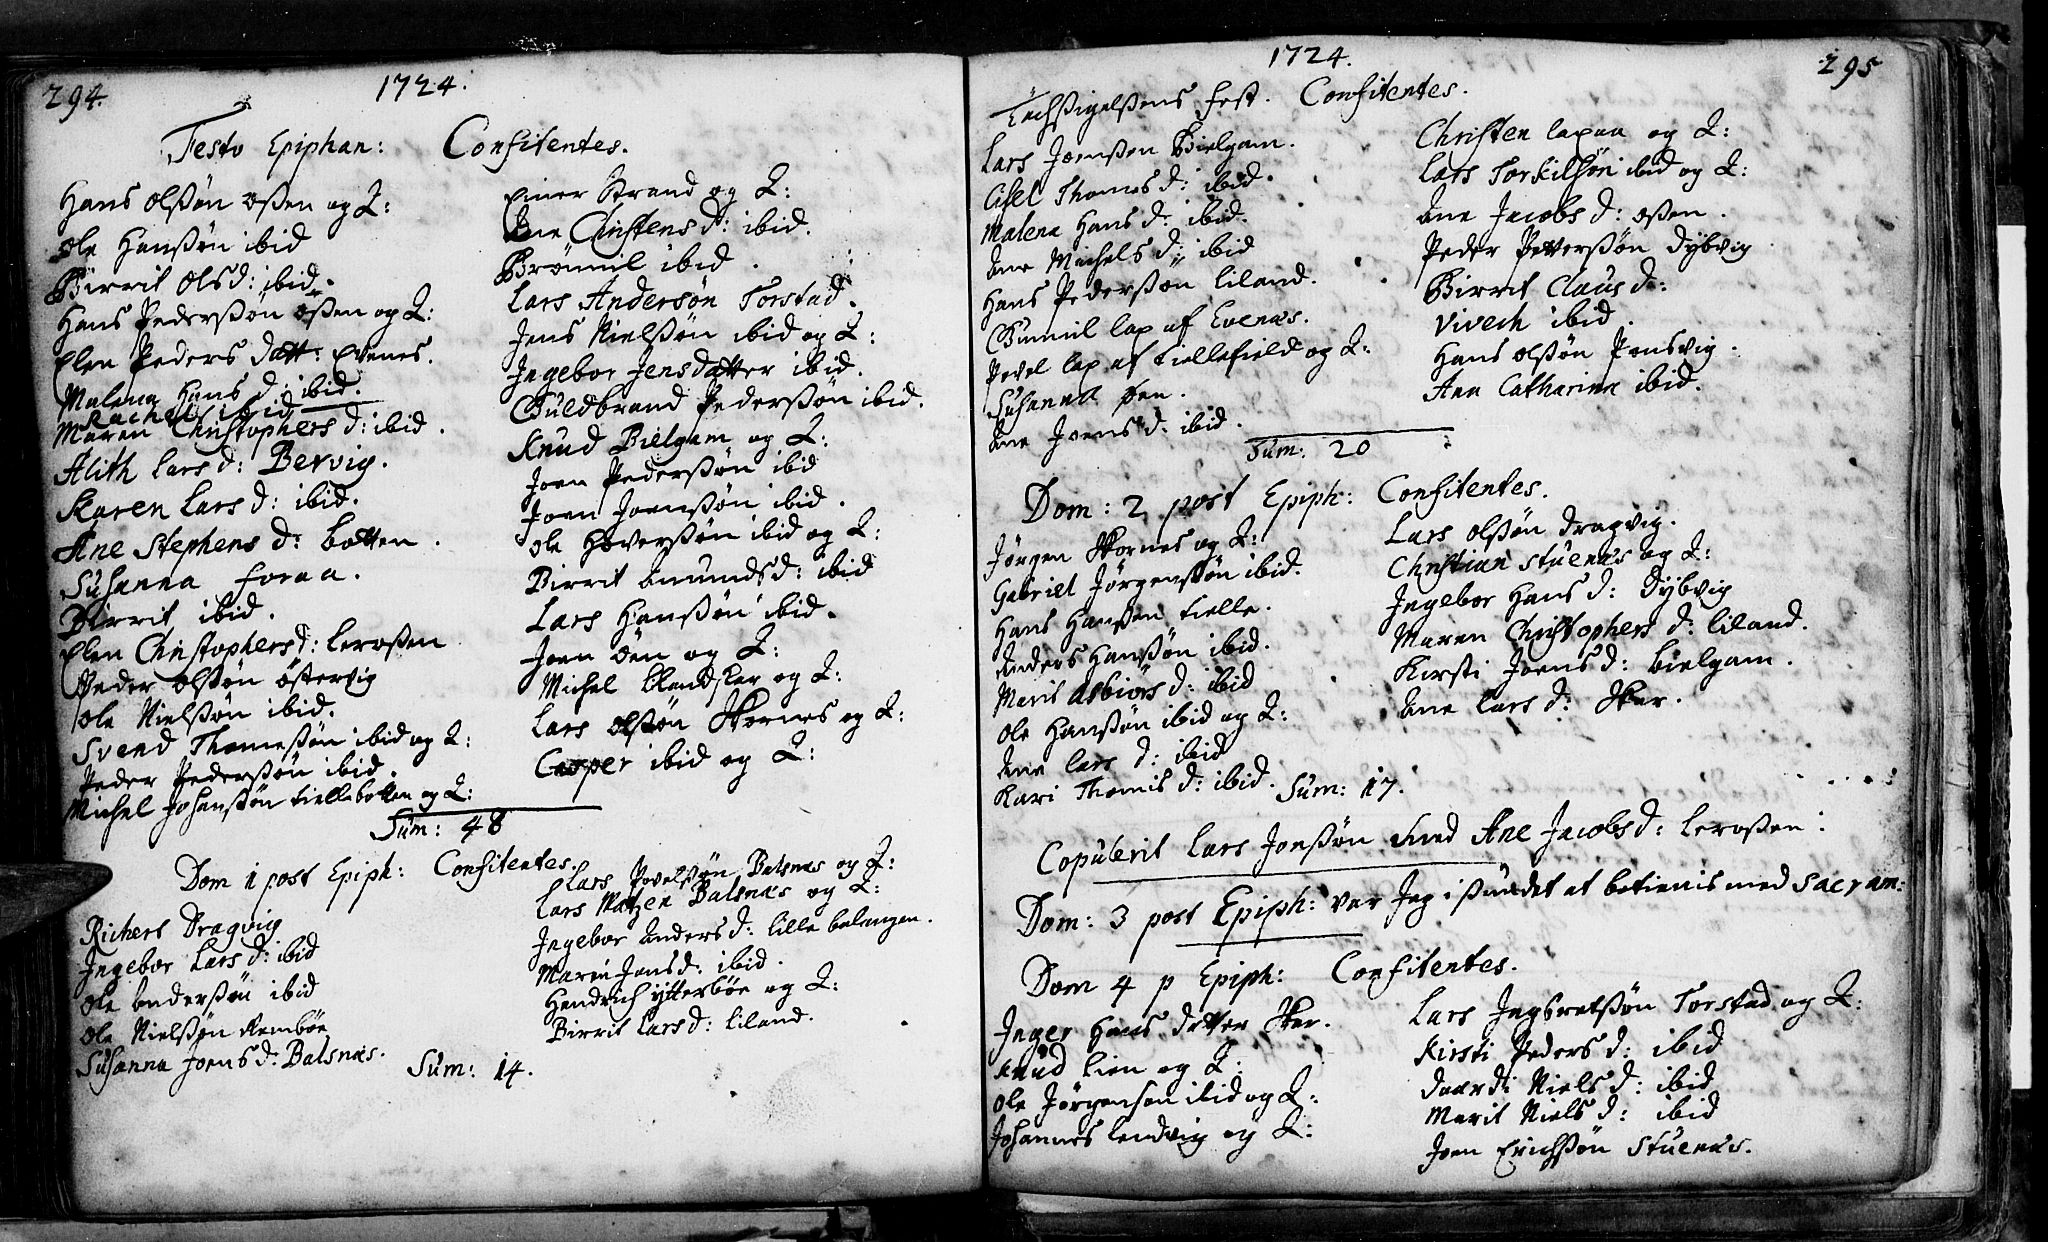 294.
1724.
Festo Epiphan: Confitentes.
Hans Olssøn Ossen og Q:
Ole Hanssøn ibid
Birrit Olsd: ibid.
Hans Pederssøn Ossen og Q:
Elen Peders Datt: Evenes.
Malena Hans d: ibid.
Rachel ibid
Maren Christophers d: ibid.
Alith Lars d: Bervig.
Karen Lars d: ibid.
Ane Stephens d: Botten.
Susanna Foraa.
Birrit ibid.
Elen Christophers d: Lerossen
Peder Olssøn Østervig
Ole Nielssøn ibid.
Svend Thomessøn ibid og Q:
Peder Pederssøn ibid.
Michel Johanssøn Fiellebotten og Q:
Einer Strand og Q:
Ane Christens d: ibid.
Brønnil ibid.
Lars Andersøn Torstad.
Jens Nielssøn ibid og Q:
Ingebor Jensdatter ibid.
Guldbrand Pederssøn ibid.
Knud Bielgam og Q:
Joen Pederssøn ibid
Joen Joenssøn ibid.
Ole Haverssøn ibid og Q:
Birrit Amunds d: ibid
Lars Hanssøn ibid.
Joen Øen og Q:
Michel Blandskar og Q:
Lars Olssøn Skornes og Q:
Casper ibid og Q:
Sum: 48
Dom 1 post Epiph: Confitentes.
Richert Dragvig
Ingebor Lars d: ibid
Ole Anderssøn ibid
Ole Nielssøn Rembøe
Susanna Joens d: Balsnæs.
Lars Povelssøn Balsnæs og Q:
Lars Matzen Balsnæs og Q:
Ingebor Anders d: Lille balangen.
Maren Jens d: ibid.
Hendrich Ytterbøe og Q:
Birrit Lars d: Liland.
Sum: 14.
1724.
295
Confitentes.
Lars Joenssøn Bielgam.
Cissel Thomes d: ibid.
Malena Hans d: ibid.
Ane Michels d: ibid
Hans Pederssøn Liland.
Gunnil lap af Evenæs.
Povel lap af Fiellefield og Q:
Susanna Øen.
Ane Joens d: ibid.
Christen Lapaa og Q:
Lars Torkilsøn ibid og Q:
Ane Jacobs d: Ossen.
Peder Petterssøn Dybvig
Birrit Claus d:
Vivech ibid.
Hans Olssøn Pensvig.
Ana Catharina ibid.
Sum: 20
Dom: 2 post Epiph: Confitentes.
Jørgen Skornes og Q:
Gabriel Jørgenssøn ibid.
Hans Hanssen Fielle.
Anders Hanssøn ibid.
Marit Asbiørs d: ibid
Ole Hanssøn ibid og Q:
Ane Lars d: ibid
Kari Thomis d: ibid.
Lars Olssøn Dragvig.
Christian Stuenæs og Q:
Ingebor Hans d: Dybvig
Maren Christophers d: Liland.
Kirsti Joens d: Bielgam.
Ane Lars d: Skar.
Sum: 17.
Copulerit Lars Jonssøn med Ane Jacobs d: Lerossen:
Dom: 3 post Epiph: var Jeg i Sundet at betienis med Sacram:
Dom 4 p Epiph: Confitentes.
Inger Hans Datter Skar.
Knud Lien og Q:
Ole Jørgensøn ibid og Q:
Johannes Lendvig og Q:
Lars Ingbretssøn Torstad og Q:
Kirsti Peders d: ibid
Niels d: ibid
Marit Niels d: ibid
Joen Erichssøn Stuenæs.